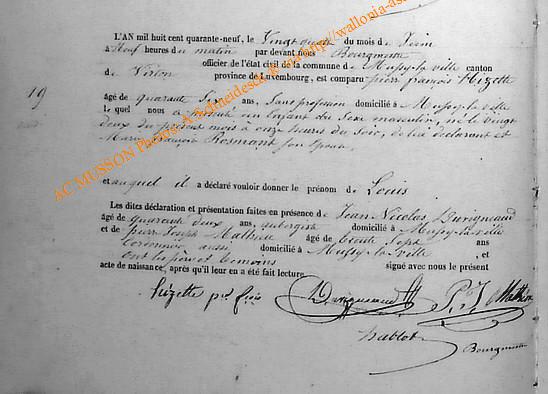 L'AN mil huit cent quarante-neuf, le Vingt quatre du mois de Juin
à Neuf heures du matin par devant nous Bourgmestre
officier de l'état civil de la commune de Mussy-la-ville canton
de Virton province de Luxembourg, est comparu pierre françois Hizette
19
âgé de quarante ans, Sans profession domicilié à Mussy-la-ville
lequel nous a présenté un Enfant du Sexe masculin, né le vingt
deux du présent mois à onze heures du Soir, de lui déclarant et
Marie Rosmant Son Epouse
et auquel il a déclaré vouloir donner le prénom de Louis
Les dites déclaration et présentation faites en présence de Jean Nicolas
âgé de quarante deux ans, aubergiste domicilié à Mussy-la-ville
et de pierre Joseph Mathieu âgé de trente Sept ans
Cordonnier aussi domicilié à Mussy-la-ville, et
ont les père et témoins signé avec nous le présent
acte de naissance, après qu'il leur en a été fait lecture.
hizette pre fois P. J. Mathieu
hablot
Bourgmestre
AC MUSSON Photos: A.Schneidesch & via http://wallonia-as